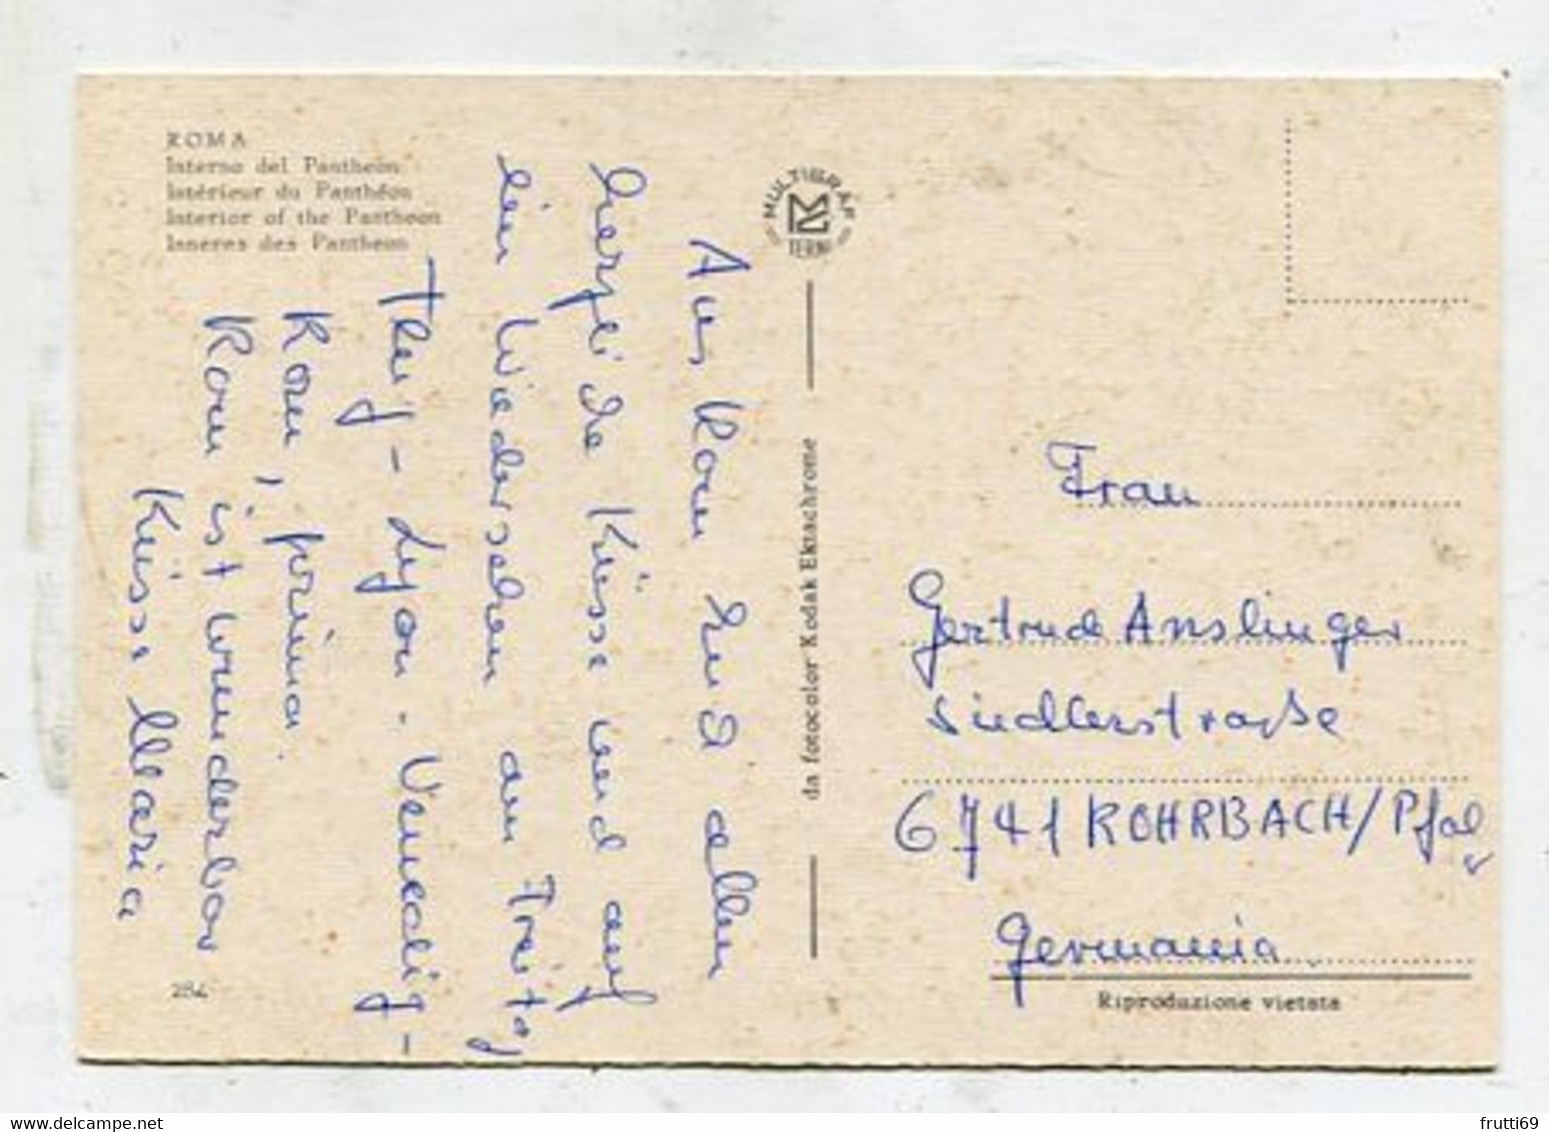 ROMA
Interno del Pantheon
Intérieur du Panthéon
Interior of the Pantheon
Inneres des Pantheon
Aus Rom Euch allen
herzliche Küsse und auf
ein Wiedersehen am Freitag
Flug - Lyon - Venedig -
Rom, prima.
Rom ist wunderbar
Küsse Maria
284
MULTIGRAF
TERNI
da fotocolor Kodak Ektachrome
Frau
Gertrude Anslinger
Siedlerstraße
6741 ROHRBACH/Pfalz
Germania
Riproduzione vietata
frutti69